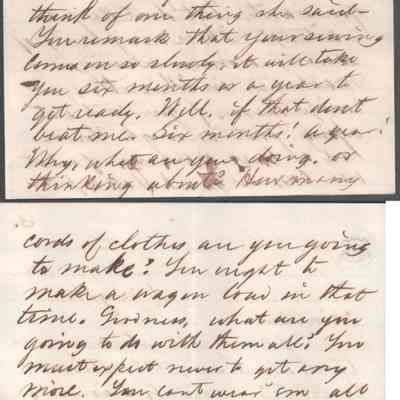 think of one thing she said—
You remark that your sewing
comes on so slowly, it will take
you six months or a year to
get ready. Well, if that don't
beat me. Six months! a year!
Why, what are you doing, or
thinking about? How many
cords of clothes are you going
to make? You ought to
make a wagon load in that
time. Goodness, what are you
going to do with them all? You
must expect never to get any
more. You cant wear em all